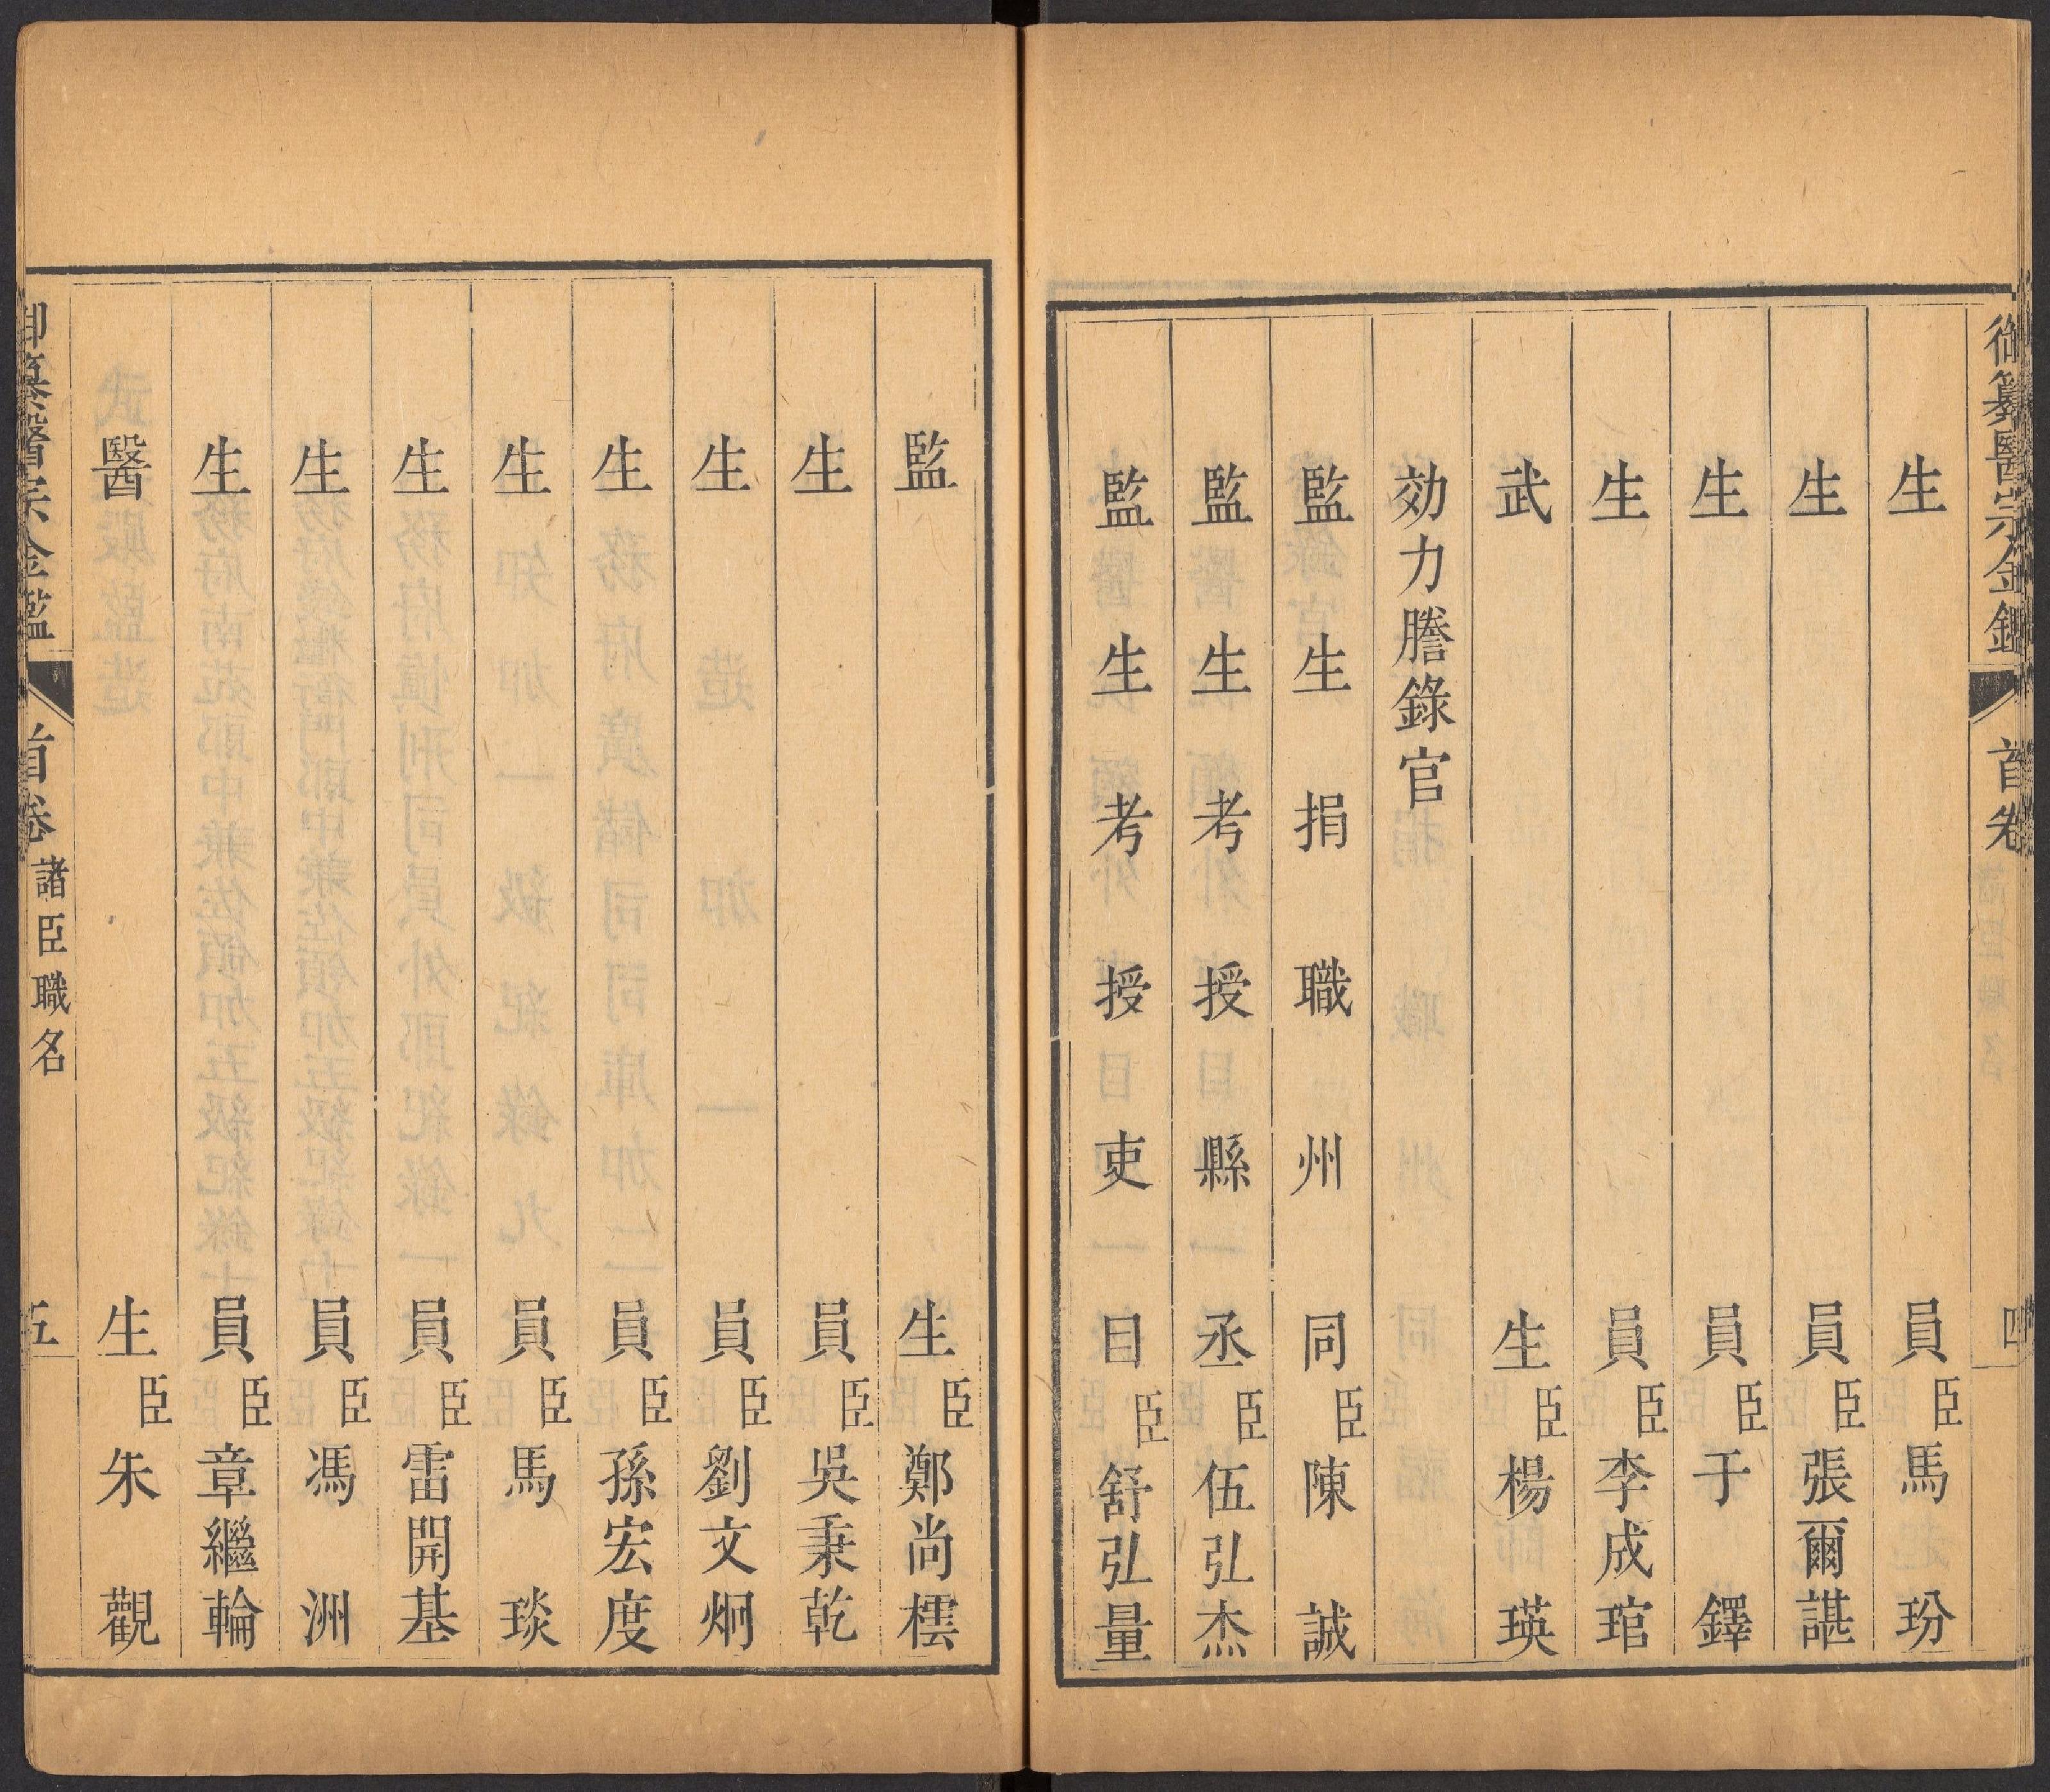 御纂醫宗金鑑 首卷 四
生員臣馬玢
生員臣張爾諶
生員臣于鐸
生員臣李成琯
武生臣楊瑛
効力謄錄官
監生捐職州同臣陳誠
監生考授縣丞臣伍弘杰
監生考授吏目臣舒弘量
監生臣鄭尚橒
生員臣吳秉乾
生員臣劉文炯
生員臣孫宏度
生員臣馬琰
生員臣雷開基
生員臣馮洲
生員臣章繼輪
醫生臣朱觀
御纂醫宗金鑑 首卷 諸臣職名 五